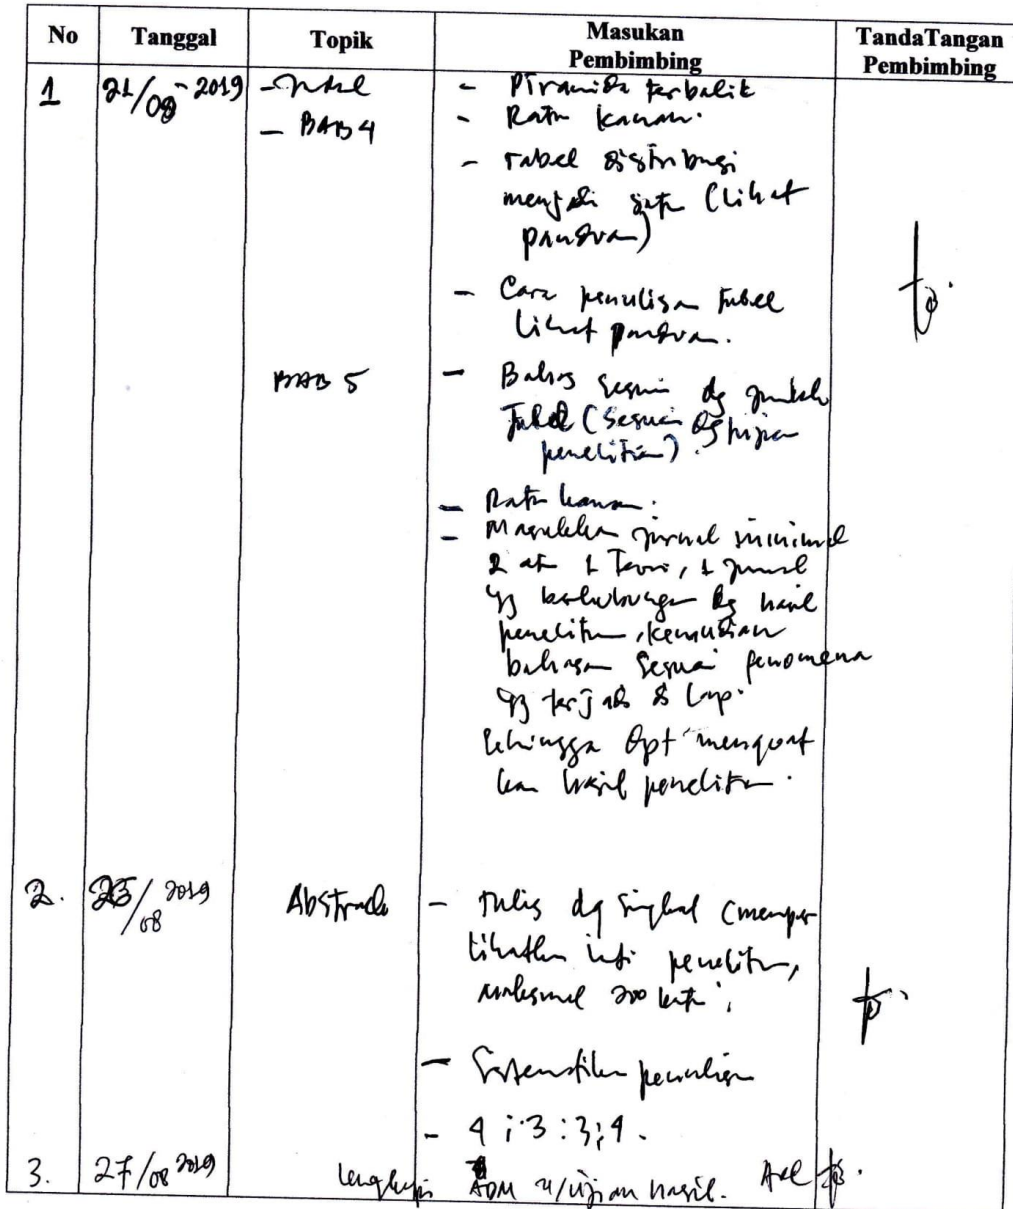 No Tanggal Topik Masukan Pembimbing TandaTangan Pembimbing
1 21/08-2019 - Judul - Piramida terbalik
- BAB 4 - Rata kanan.
- Tabel distribusi
menjadi satu (lihat
panduan)
- Cara penulisan tabel
lihat panduan.
BAB 5 - Bahas sesuai dg jumlah
Tabel (sesuai dg tujuan
penelitian).
- Rata kanan.
- Masukkan jurnal minimal
2 at 1 Teori, 1 jurnal
yg berhubungan dg hasil
penelitian, kemudian
bahasan sesuai fenomena
yg terjadi di Lap.
sehingga dpt menguat
kan hasil penelitian.
2. 23/08 2019 Abstrak - Tulis dg singkat (memper
lihatkan inti penelitian,
maksimal 200 kata.
- Sistematika penulisan
- 4 : 3 : 3 : 4.
3. 27/08 2019 Lengkapi ADM u/ujian hasil. Acc